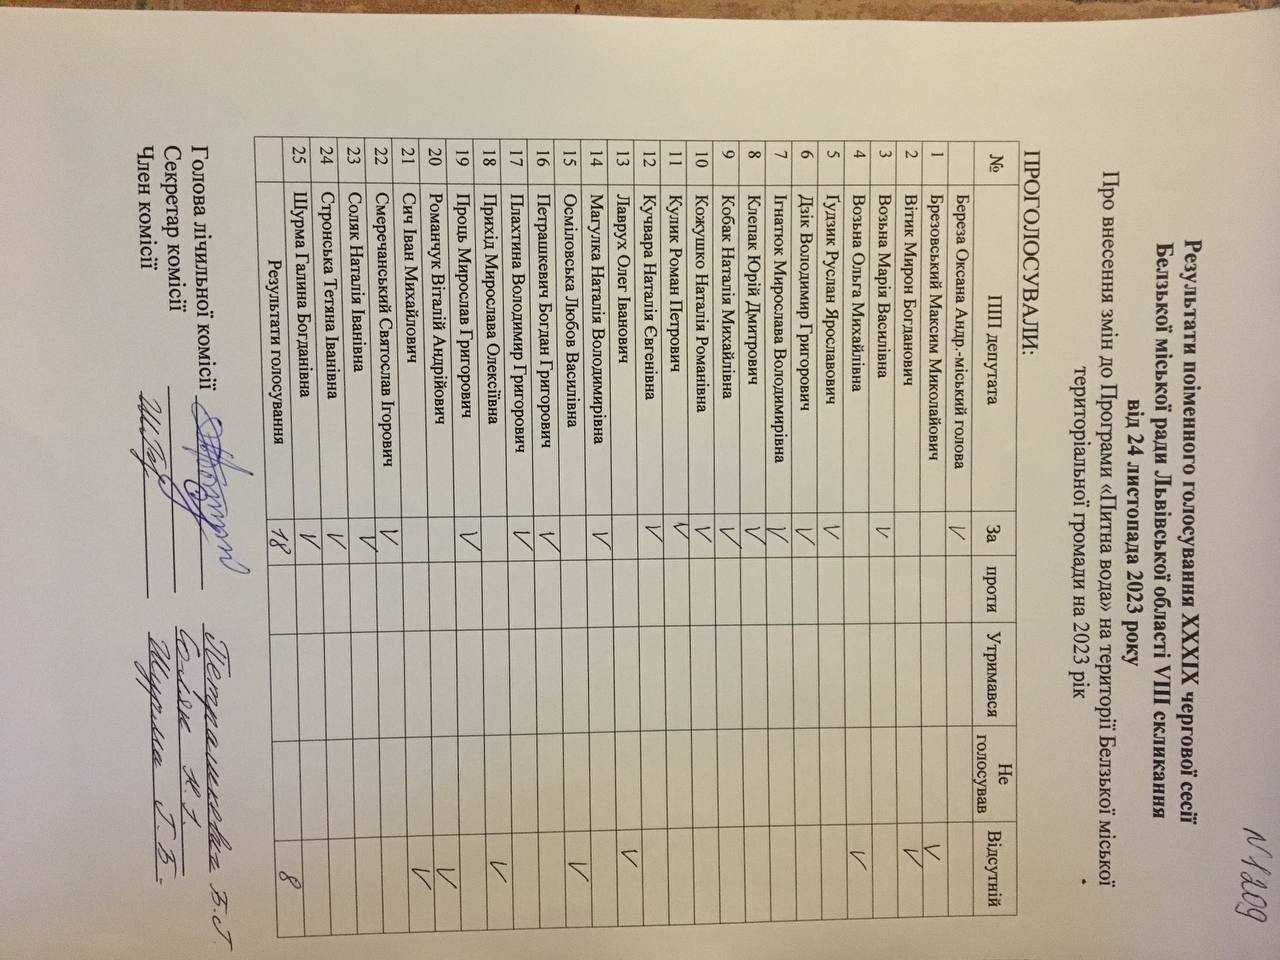 N 1209
Результати поіменного голосування XXXIX чергової сесії
Белзької міської ради Львівської області VIII скликання
від 24 листопада 2023 року
Про внесення змін до Програми «Питна вода» на території Белзької міської
територіальної громади на 2023 рік
ПРОГОЛОСУВАЛИ:
№ ПІП депутата За проти Утримався Не голосував Відсутній
Береза Оксана Андр.-міський голова V
1 Брезовський Максим Миколайович V
2 Вітик Мирон Богданович V
3 Возьна Марія Василівна V
4 Возьна Ольга Михайлівна V
5 Ґудзик Руслан Ярославович V
6 Дзік Володимир Григорович V
7 Ігнатюк Мирослава Володимирівна V
8 Клепак Юрій Дмитрович V
9 Кобак Наталія Михайлівна V
10 Кожушко Наталія Романівна V
11 Кулик Роман Петрович V
12 Кучвара Наталія Євгенівна V
13 Лаврух Олег Іванович V
14 Магулка Наталія Володимирівна V
15 Осміловська Любов Василівна V
16 Петрашкевич Богдан Григорович V
17 Плахтина Володимир Григорович V
18 Прихід Мирослава Олексіївна V
19 Проць Мирослав Григорович V
20 Романчук Віталій Андрійович V
21 Сич Іван Михайлович V
22 Смеречанський Святослав Ігорович V
23 Соляк Наталія Іванівна V
24 Стронська Тетяна Іванівна V
25 Щурма Галина Богданівна V
Результати голосування 18 8
Голова лічильної комісії Петрашкевич Б.Г.
Секретар комісії Соляк Н.І.
Член комісії Щурма Г.Б.